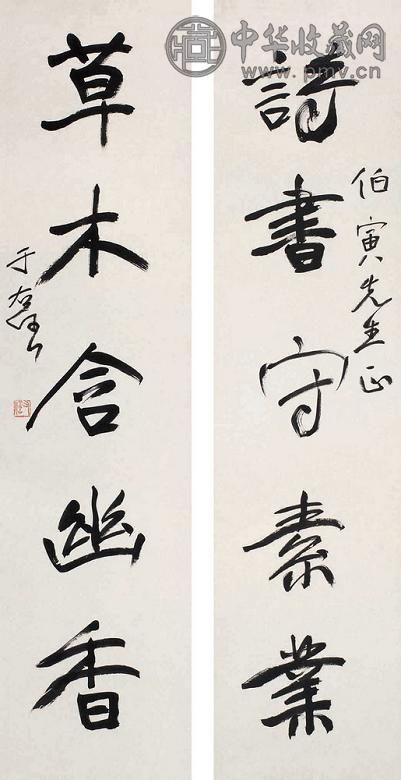 中华收藏网
www.pmv.cn
伯寅先生正
詩書守素業
草木含幽香
于右任